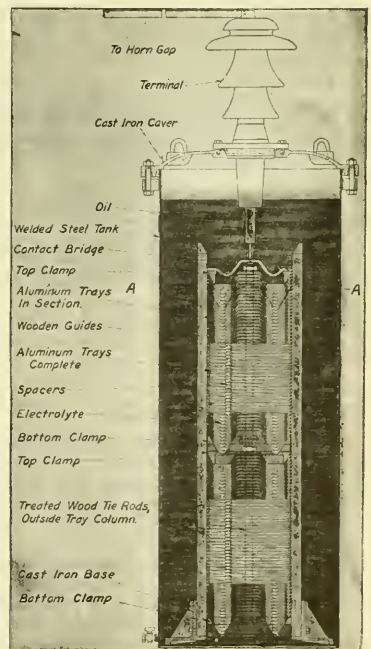 To Horn Gap
Terminal
Cast Iron Cover
Oil
Welded Steel Tank
Contact Bridge
Top Clamp
Aluminum Trays
In Section.
A
A
Wooden Guides
Aluminum Trays
Complete
Spacers
Electrolyte
Bottom Clamp
Top Clamp
Treated Wood Tie Rods,
Outside Tray Column.
Cast Iron Base
Bottom Clamp